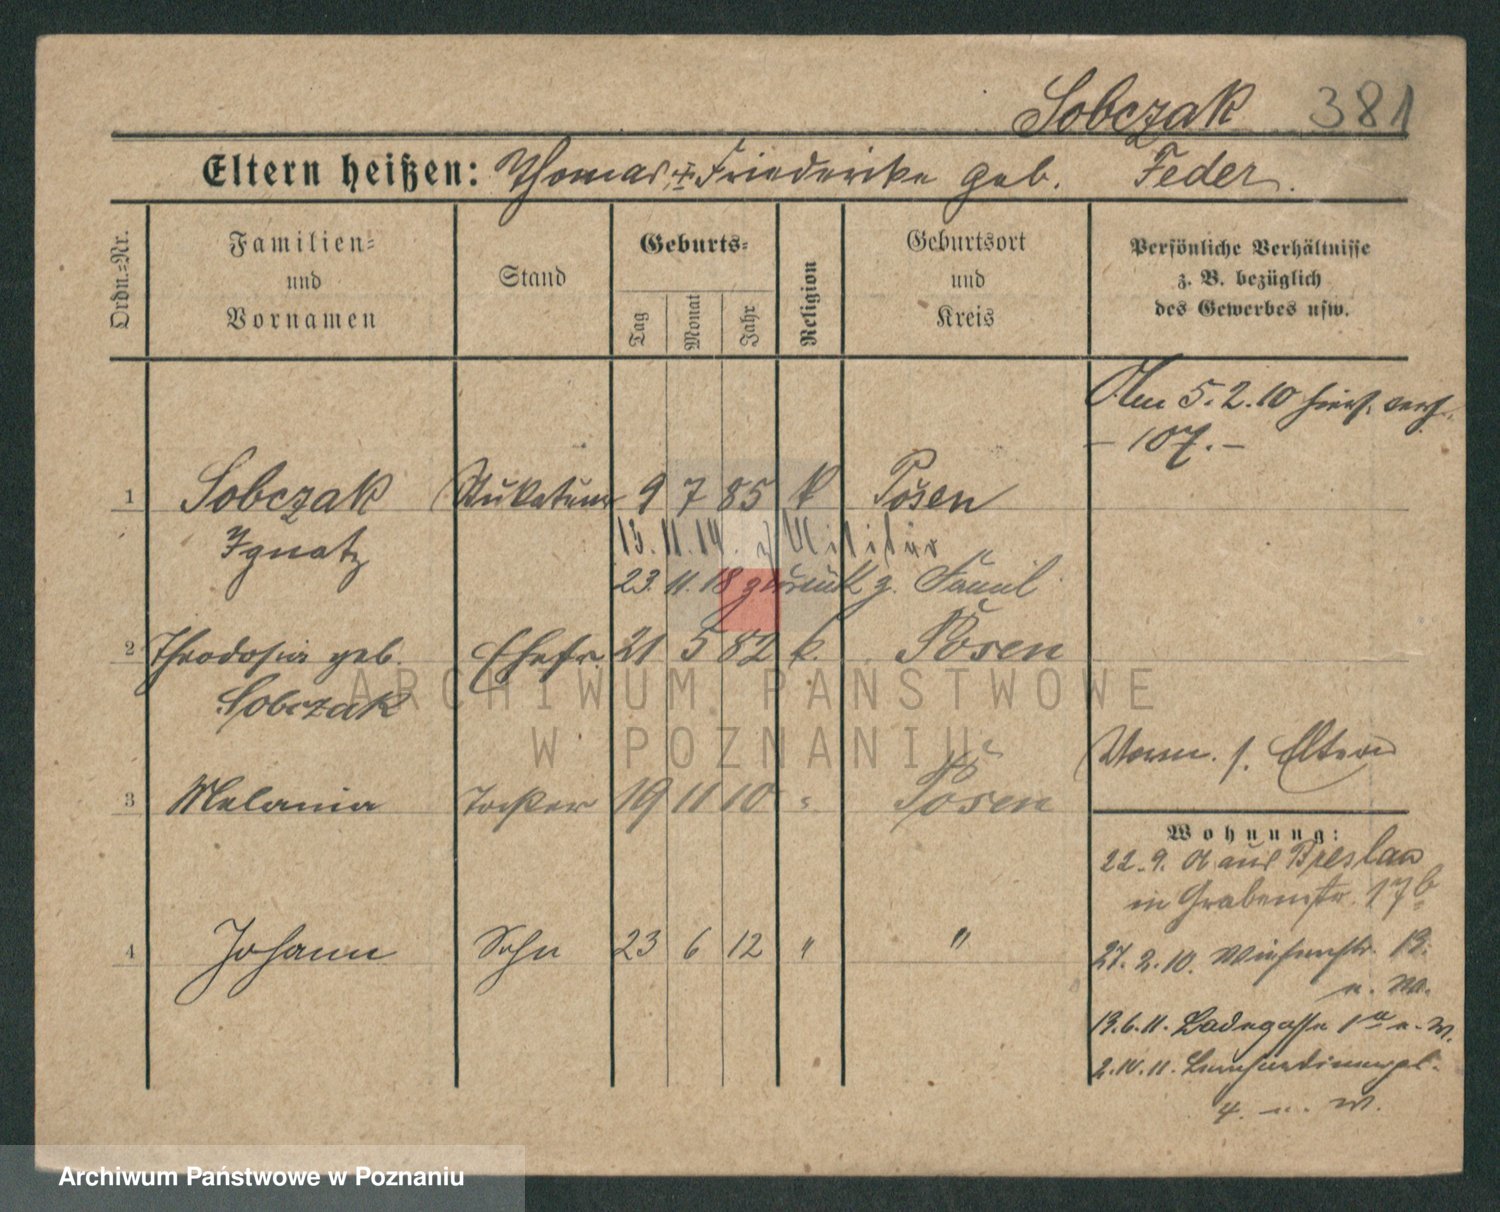 Sobczak 381
Eltern heißen: Thomas u Friederike geb. Feder.
Ordn.=Nr.
Familien=
und
Vornamen
Stand
Geburts=
Tag
Monat
Jahr
Religion
Geburtsort
und
Kreis
Persönliche Verhältnisse
z. B. bezüglich
des Gewerbes usw.
Am 5.2.10
– 107. –
1 Sobczak Stukateur 9 7 85 k Posen
Ignatz 13.11.14. z Militär
23.11.18 zurück z. Famil
2 Theodosia geb. Ehefr. 21 5 82 k. Posen
Sobczak
Vorm. s. Eltern
3 Melania Tochter 19 11 10 " Posen
Wohnung:
22.9. aus Breslau
in Grabenstr. 17b
4 Johann Sohn 23 6 12 " "
27.2.10. 13.
13.6.11. Badegasse 1a u. W.
2.10.11. Bernhardinerpl.
4. u. W.
ARCHIWUM PAŃSTWOWE
W POZNANIU
Archiwum Państwowe w Poznaniu